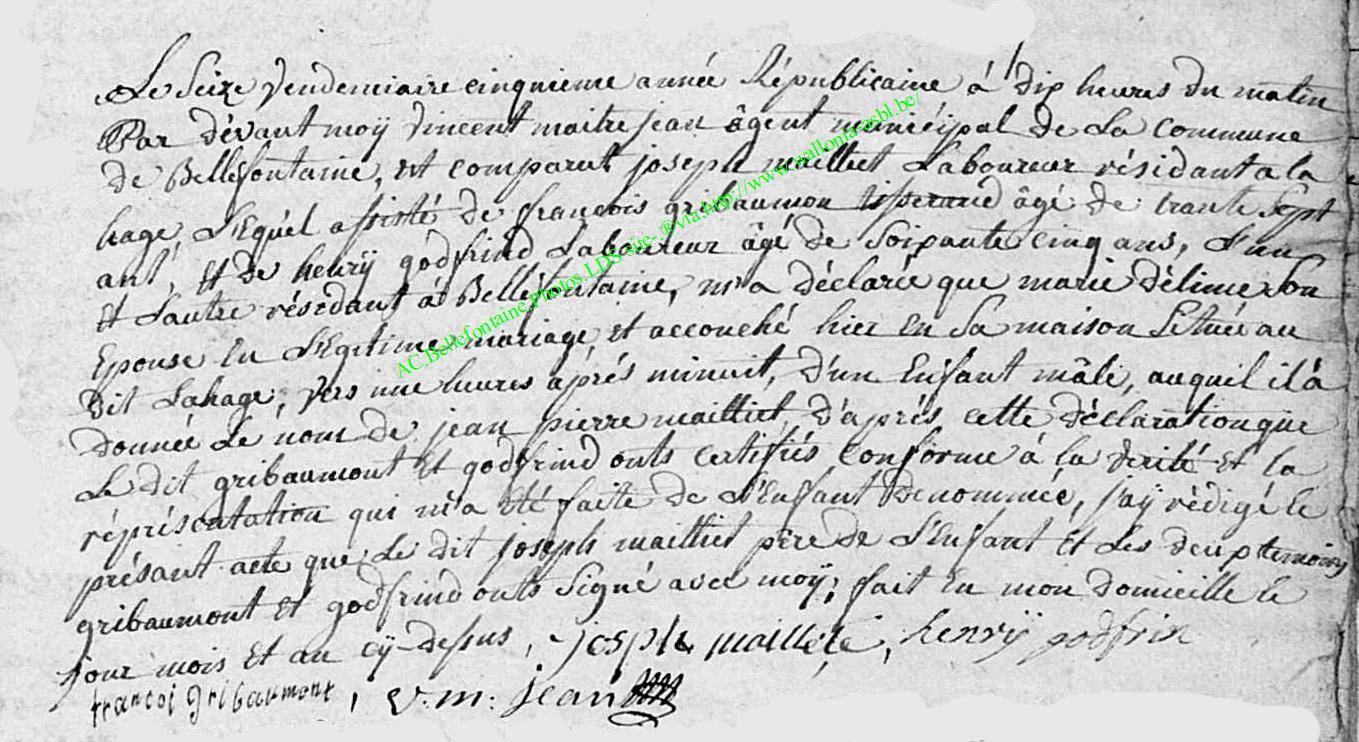 Le Seize Vendemiaire cinquieme année Républicaine à dix heures du matin
Par dévant moÿ Vincent maitrejean âgent municipal de La Commune
de Bellefontaine, est comparut joseph mailliet Laboureur résidant a la
hage, L'Equél assisté de françois gribaumon tisserand âgé de trante Sept
ant, et de henrÿ gôdfrind Laboureur âgé de Soixante cinq ans, L'un
et L'autre résidant à Belléfontaine, m'a déclarée que marie délime Son
Epouse En L'Egitime mariage, et accouché hier En Sa maison Situéé au
dit Lahage, vers une heures aprés minuit, d'un Enfant mâle, auquél il à
donnée Le nom de jean pierre mailliet, d'aprés cette déclaration que
Le dit gribaumont et gôdfrind onts certifiés conforme à la verité et la
réprésentation qui m'a été faite de L'Enfant denommée, j'aÿ rédigé le
présant acte que Le dit joseph mailliet pére de L'Enfant et Les deux temoins
gribaumont et godfrind onts Signé avec moÿ; fait En mon domicille le
jour mois et an cÿ-dessus, josph maillete, henrÿ godfrin
francoi gribaumont, v. m. jean
AC.Bellefontaine.Photos.LDS-site-®via.http://www.wallonia-asbl.be/